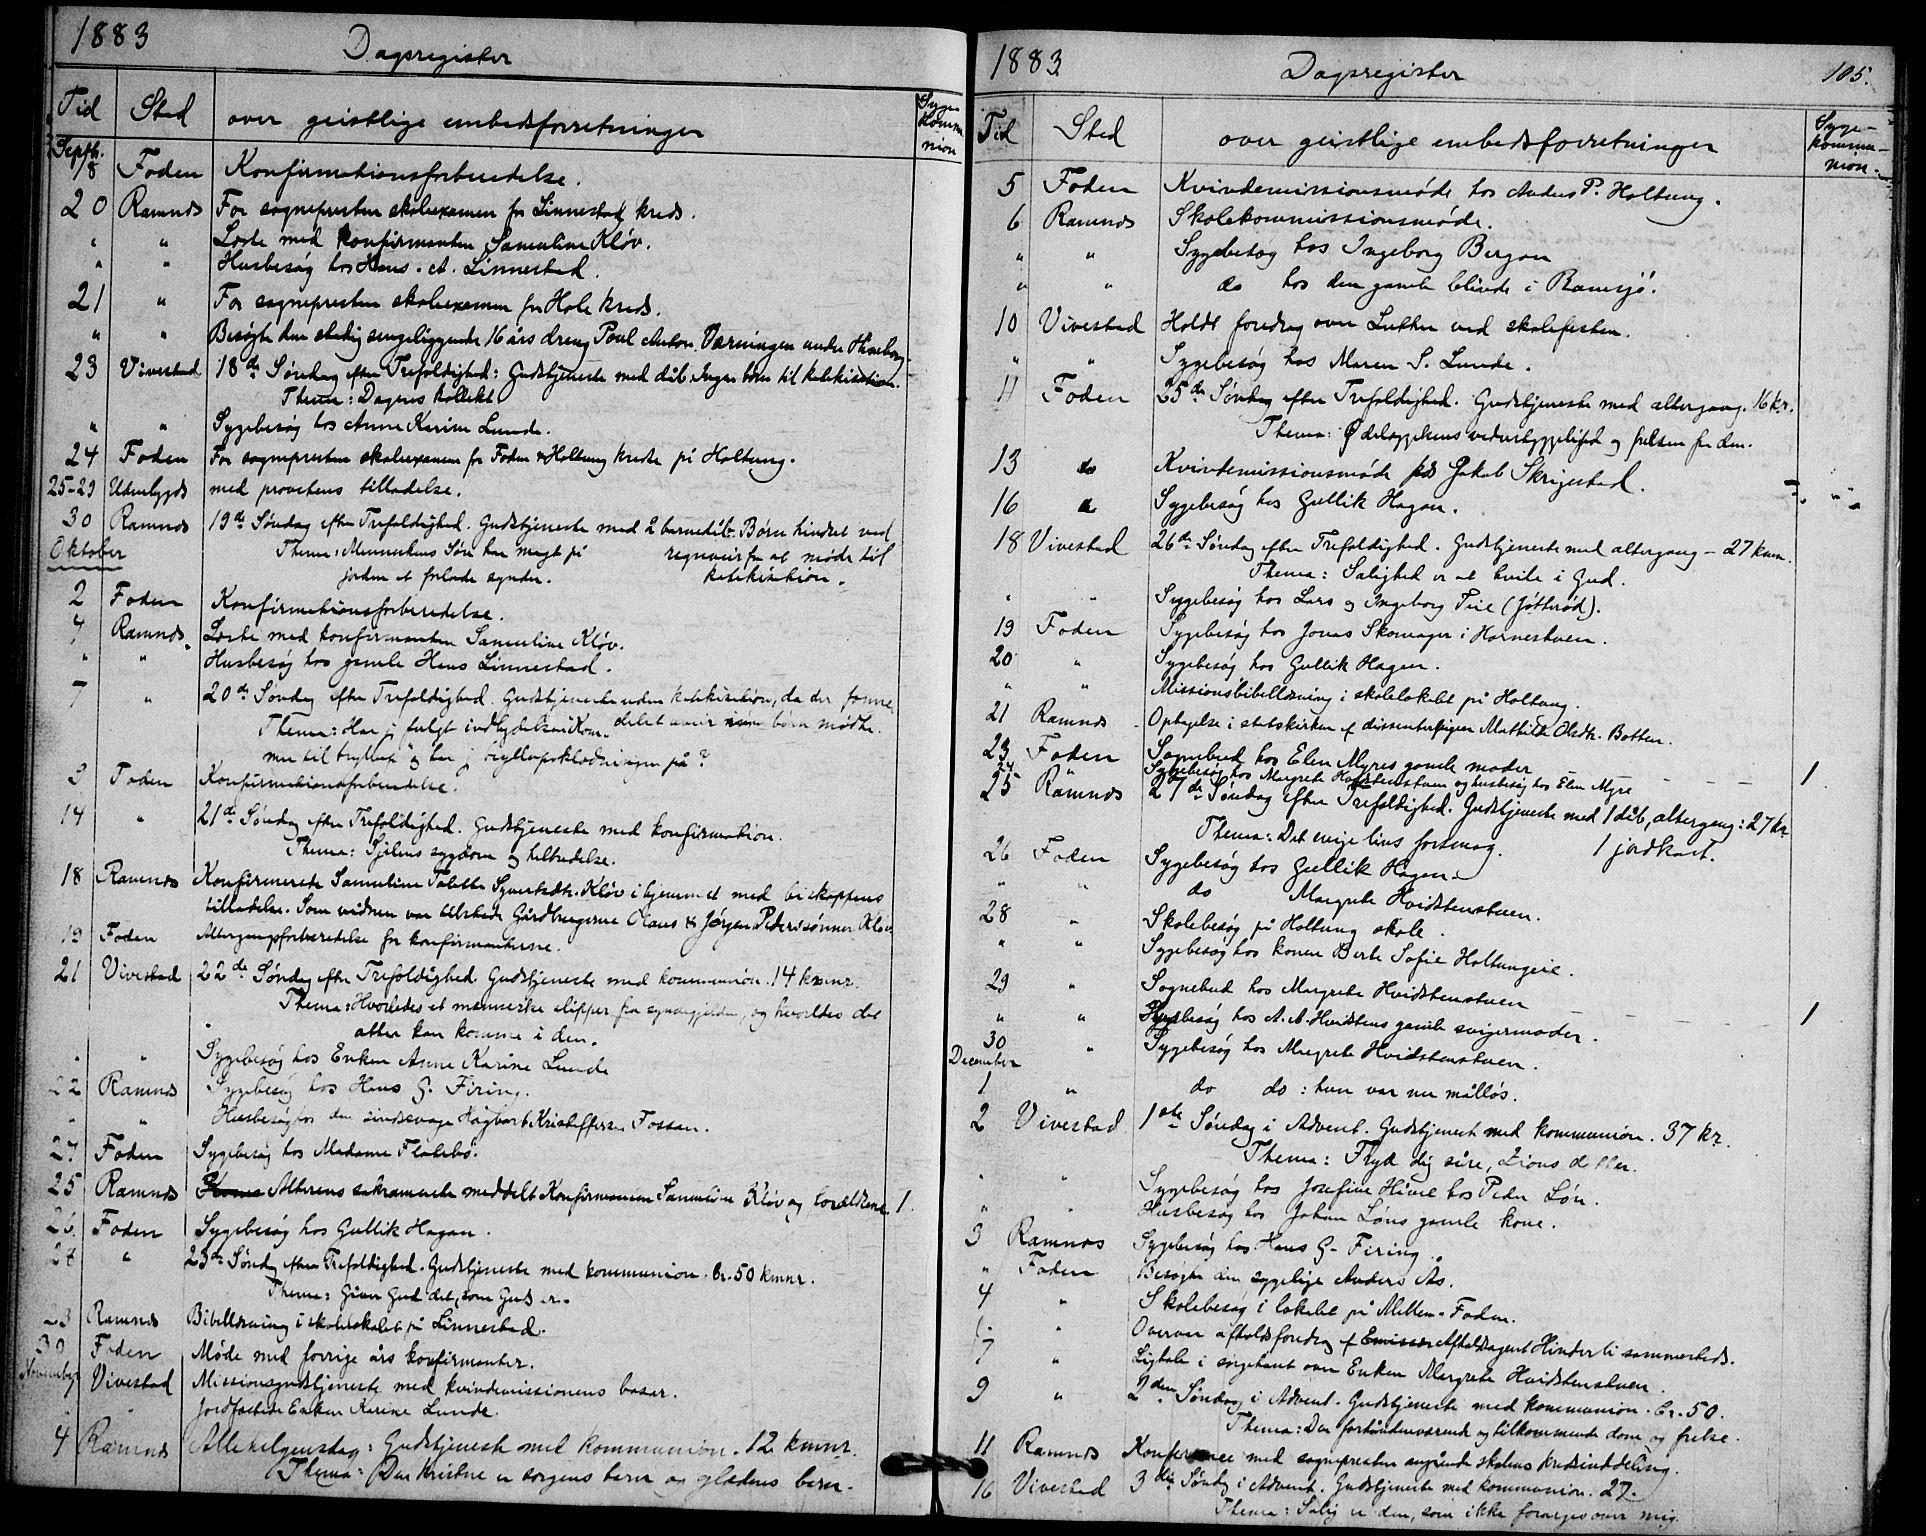 1883
Dagsregister
Tid Sted over geistlige embedsforretninger Syge- kommu- nion
Septb.
18 Foden Konfirmationsforberedelse.
20 Ramnes For sognepresten skoleexamen for Linnestad kreds.
" " Læste med konfirmanten Samueline Kløv.
" " Husbesøg hos Hans A. Linnestad.
21 " For sognepresten skoleexamen for Hole kreds.
" " Besøgte den stadig sengeliggende 16 års dreng Poul Anton
23 Vivestad 18de Søndag efter Trefoldighed: Gudstjeneste med dåb. Ingen børn til katekisation.
Thema: Dagens kollekt.
" " Sygebesøg hos Anne Karine Lunde.
24 Foden For sognepresten skoleexamen for Foden & Holtung kredse på Holtung.
25-29 Udenbygds med provstens tilladelse.
30 Ramnes 19de Søndag efter Trefoldighed. Gudstjeneste med 2 barnedåb. Børn hindret ved
Oktober Thema: Menneskens Søn har magt på regnveir fra at møde til
jorden at forlade synder. katekisation.
2 Foden Konfirmationsforberedelse.
4 Ramnes Læste med konfirmanten Samueline Kløv.
" " Husbesøg hos gamle Hans Linnestad.
7 " 20de Søndag efter Trefoldighed. Gudstjeneste uden katekisation, da der formedelst
Thema: Har jeg fulgt indbydelsen: Kom- uveir børn mødte.
mer til bryllup og har jeg bryllupsklædningen på?
9 Foden Konfirmationsforberedelse.
14 " 21de Søndag efter Trefoldighed. Gudstjeneste med konfirmation.
Thema: Sjelens sygdom og helbredelse.
18 Ramnes Konfirmerede Samueline Kløv i hjemmet med biskoppens
tilladelse. Som vidner var tilstede Gårdbrugerne Olaus & Jørgen Pederssønner Kløv.
19 Foden Altergangsforberedelse for konfirmanterne.
21 Vivestad 22de Søndag efter Trefoldighed. Gudstjeneste med kommunion. 14 kmnr.
Thema: Hvorledes et menneske slipper fra syndegjelden, og hvorledes det
atter kan komme i den.
" " Sygebesøg hos Enken Anne Karine Lunde
22 Ramnes Sygebesøg hos Hans G. Firing.
" " Husbesøg hos den sindssvage Hagbart Kristoffersen Fossan.
Foden Sygebesøg hos Madame Flatebø.
25 Ramnes Alterens sakramente meddelt Konfirmanten Samueline Kløv og forældrene 1.
26 Foden Sygebesøg hos Gullik Hagan.
28 " 23de Søndag efter Trefoldighed. Gudstjeneste med kommunion. Cr. 50 kmnr.
Thema: Giver Gud det, som Guds er.
Ramnes Bibellæsning i skolelokalet på Linnestad.
30 Foden Møde med forrige års konfirmanter.
November Vivestad Missionsgudstjeneste med kvindemissionens basar.
" Jordfæstede Enken Karine Lunde.
4 Ramnes Allehelgensdag: Gudstjeneste med kommunion. 12 kmnr.
Thema: Den kristne er sorgens barn og glædens barn.
1883
Dagsregister
105.
Tid Sted over geistlige embedsforretninger Syge- kommu- nion.
5 Foden Kvindemissionsmøde hos Anders P. Holtung.
6 Ramnes Skolekommissionsmøde.
" " Sygebesøg hos Ingeborg Bergan
" " do hos den gamle blinde i Ramsjø.
10 Vivestad Holdt foredrag over Luther ved skolefesten.
" " Sygebesøg hos Maren S. Lunde.
11 Foden 25de Søndag efter Trefoldighed. Gudstjeneste med altergang. 16 kr.
Thema: Ødelæggelsens vederstyggelighed og frelsen fra den.
13 do Kvindemissionsmøde hos Jakob Skrigestad.
16 Sygebesøg hos Gullik Hagan.
18 Vivestad 26de Søndag efter Trefoldighed. Gudstjeneste med altergang - 27 kmm.
Thema: Salighed er at hvile i Gud.
" " Sygebesøg hos Lars og Ingeborg Teie
19 Foden Sygebesøg hos Jonas Skomager i Hornestuen.
20 " Sygebesøg hos Gullik Hagan.
" " Missionsbibellæsning i skolelokalet på Holtung.
21 Ramnes Optagelse i statskirken af dissenterpigen Mathilde Olsdtr. Botten.
23 Foden Sognebud hos Elen Myres gamle moder 1
24 Sygebesøg hos Margrete Hvidstenstuen og husbesøg hos Elen Myre
25 Ramnes 27de Søndag efter Trefoldighed. Gudstjeneste med 1 dåb, altergang: 27 kr.
Thema: Det evige livs forsmag. 1 jordkast.
26 Foden Sygebesøg hos Gullik Hagan.
" " do Margrete Hvidstenstuen.
28 " Skolebesøg på Holtung skole.
" " Sygebesøg hos konen Berte Sofie Holtungeie.
29 " Sognebud hos Margrete Hvidstenstuen
" " Sygebesøg hos A. A. Hvidstens gamle svigermoder. 1
30 " Sygebesøg hos Margrete Hvidstenstuen.
December
1 " do do: hun var nu målløs.
2 Vivestad 1ste Søndag i Advent. Gudstjeneste med kommunion. 37 kr.
Thema: Fryd dig såre, Zions datter.
" " Sygebesøg hos Josefine Himle hos Peder Løn.
" " Husbesøg hos Johan Løns gamle kone.
3 Ramnes Sygebesøg hos Hans G. Firing.
" Foden Besøgte den sygelige Anders Ås.
4 " Skolebesøg i lokalet på Mellem-Foden.
" Overvar afholdsforedrag af Afholdsagent Hinderli sammesteds.
7 " Ligtale i sørgehuset over Enken Margrete Hvidstenstuen.
9 " 2den Søndag i Advent. Gudstjeneste med kommunion. Cr. 50.
Thema: Den forhåndenværende og tilkommende dom og frelse.
11 Ramnes Konference med sognepresten angående skolens kredsinddeling.
16 Vivestad 3die Søndag i Advent. Gudstjeneste med kommunion. 27.
Thema: Salig er den, som ikke forarges over mig.